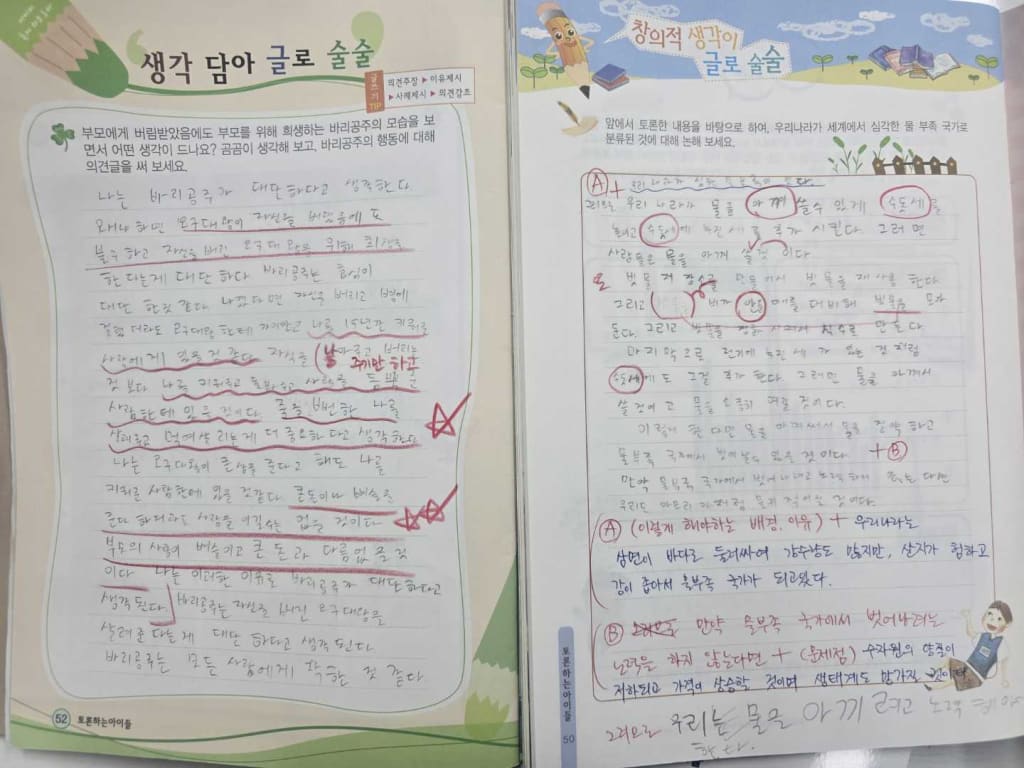 생각 담아 글로 술술
글쓰기 TIP
의견주장 ▶ 이유제시
▶ 사례제시 ▶ 의견강조
부모에게 버림받았음에도 부모를 위해 희생하는 바리공주의 모습을 보
면서 어떤 생각이 드나요? 곰곰이 생각해 보고, 바리공주의 행동에 대해
의견글을 써 보세요.
나는 바리공주가 대단하다고 생각한다
왜냐하면 오구대왕이 자신을 버렸음에도
불구하고 자신을 버린 오구대왕을 위해 희생을
한다는게 대단하다 바리공주는 효심이
대단한것 같다 나였다면 자식을 버리고 병에
걸렸더라도 오구대왕한테 가지않고 나를 15년간 키워준
사람에게 있을것 같다 자식을
낳기만 하고 버리는
것 보다 나를 키워주고 돌봐주고 사랑을 듬뿍 준
사람한테 있을 것이다 죽을 뻔한 나를
살려주고 먹여살리는게 더 중요하다고 생각한다
나는 오구대왕이 큰 상을 준다고 해도 나를
키워준 사람한테 있을것같다 큰돈이나 벼슬을
준다 하더라도 사랑을 이길수는 없을 것이다
부모의 사랑이 벼슬이고 큰 돈과 다름없을 것
이다 나는 이러한 이유로 바리공주가 대단하다고
생각된다 바리공주는 자신을 버린 오구대왕을
살려준다는게 대단하다고 생각된다
바리공주는 모든 사람에게 착한 것 같다
52 토론하는아이들
창의적 생각이
글로 술술
앞에서 토론한 내용을 바탕으로 하여, 우리나라가 세계에서 심각한 물 부족 국가로
분류된 것에 대해 논해 보세요.
Ⓐ +
그러므로 우리 나라가 물을 아껴 쓸수 있게 수돗세를
늘리고 수돗세에 누진세를 추가 시킨다 그러면
사람들은 물을 아껴 쓸것 이다
또 빗물 저장소를 만들어서 빗물을 재사용 한다.
그리고 비가 안올 때를 대비해 빗물을 모아
둔다. 그리고 빗물을 정화 시켜서 식수로 만든다
마지막으로 전기에 누진세가 있는 것 처럼
수돗세에도 그걸 추가 한다. 그러면 물을 아껴서
쓸것이고 물을 소중히 여길 것이다.
이렇게 한다면 물을 아껴써서 물을 절약하고
물부족 국가에서 벗어날수 있을 것 이다 + Ⓑ
만약 물부족 국가에서 벗어나려고 노력하지 않는다면
우리도 아프리카처럼 물이 적어질 것이다.
Ⓐ (이렇게 해야하는 배경, 이유) + 우리나라는
삼면이 바다로 둘러싸여 강수량도 많지만, 산지가 험하고
강이 좁아서 물부족 국가가 되고있다.
Ⓑ 만약 물부족 국가에서 벗어나려는
노력을 하지 않는다면 + (문제점) 수자원의 양질이
저하되고 가격이 상승할 것이며 생태계도 망가질 것이다
그러므로 우리는 물을 아끼려고 노력해야
한다.
토론하는아이들 50